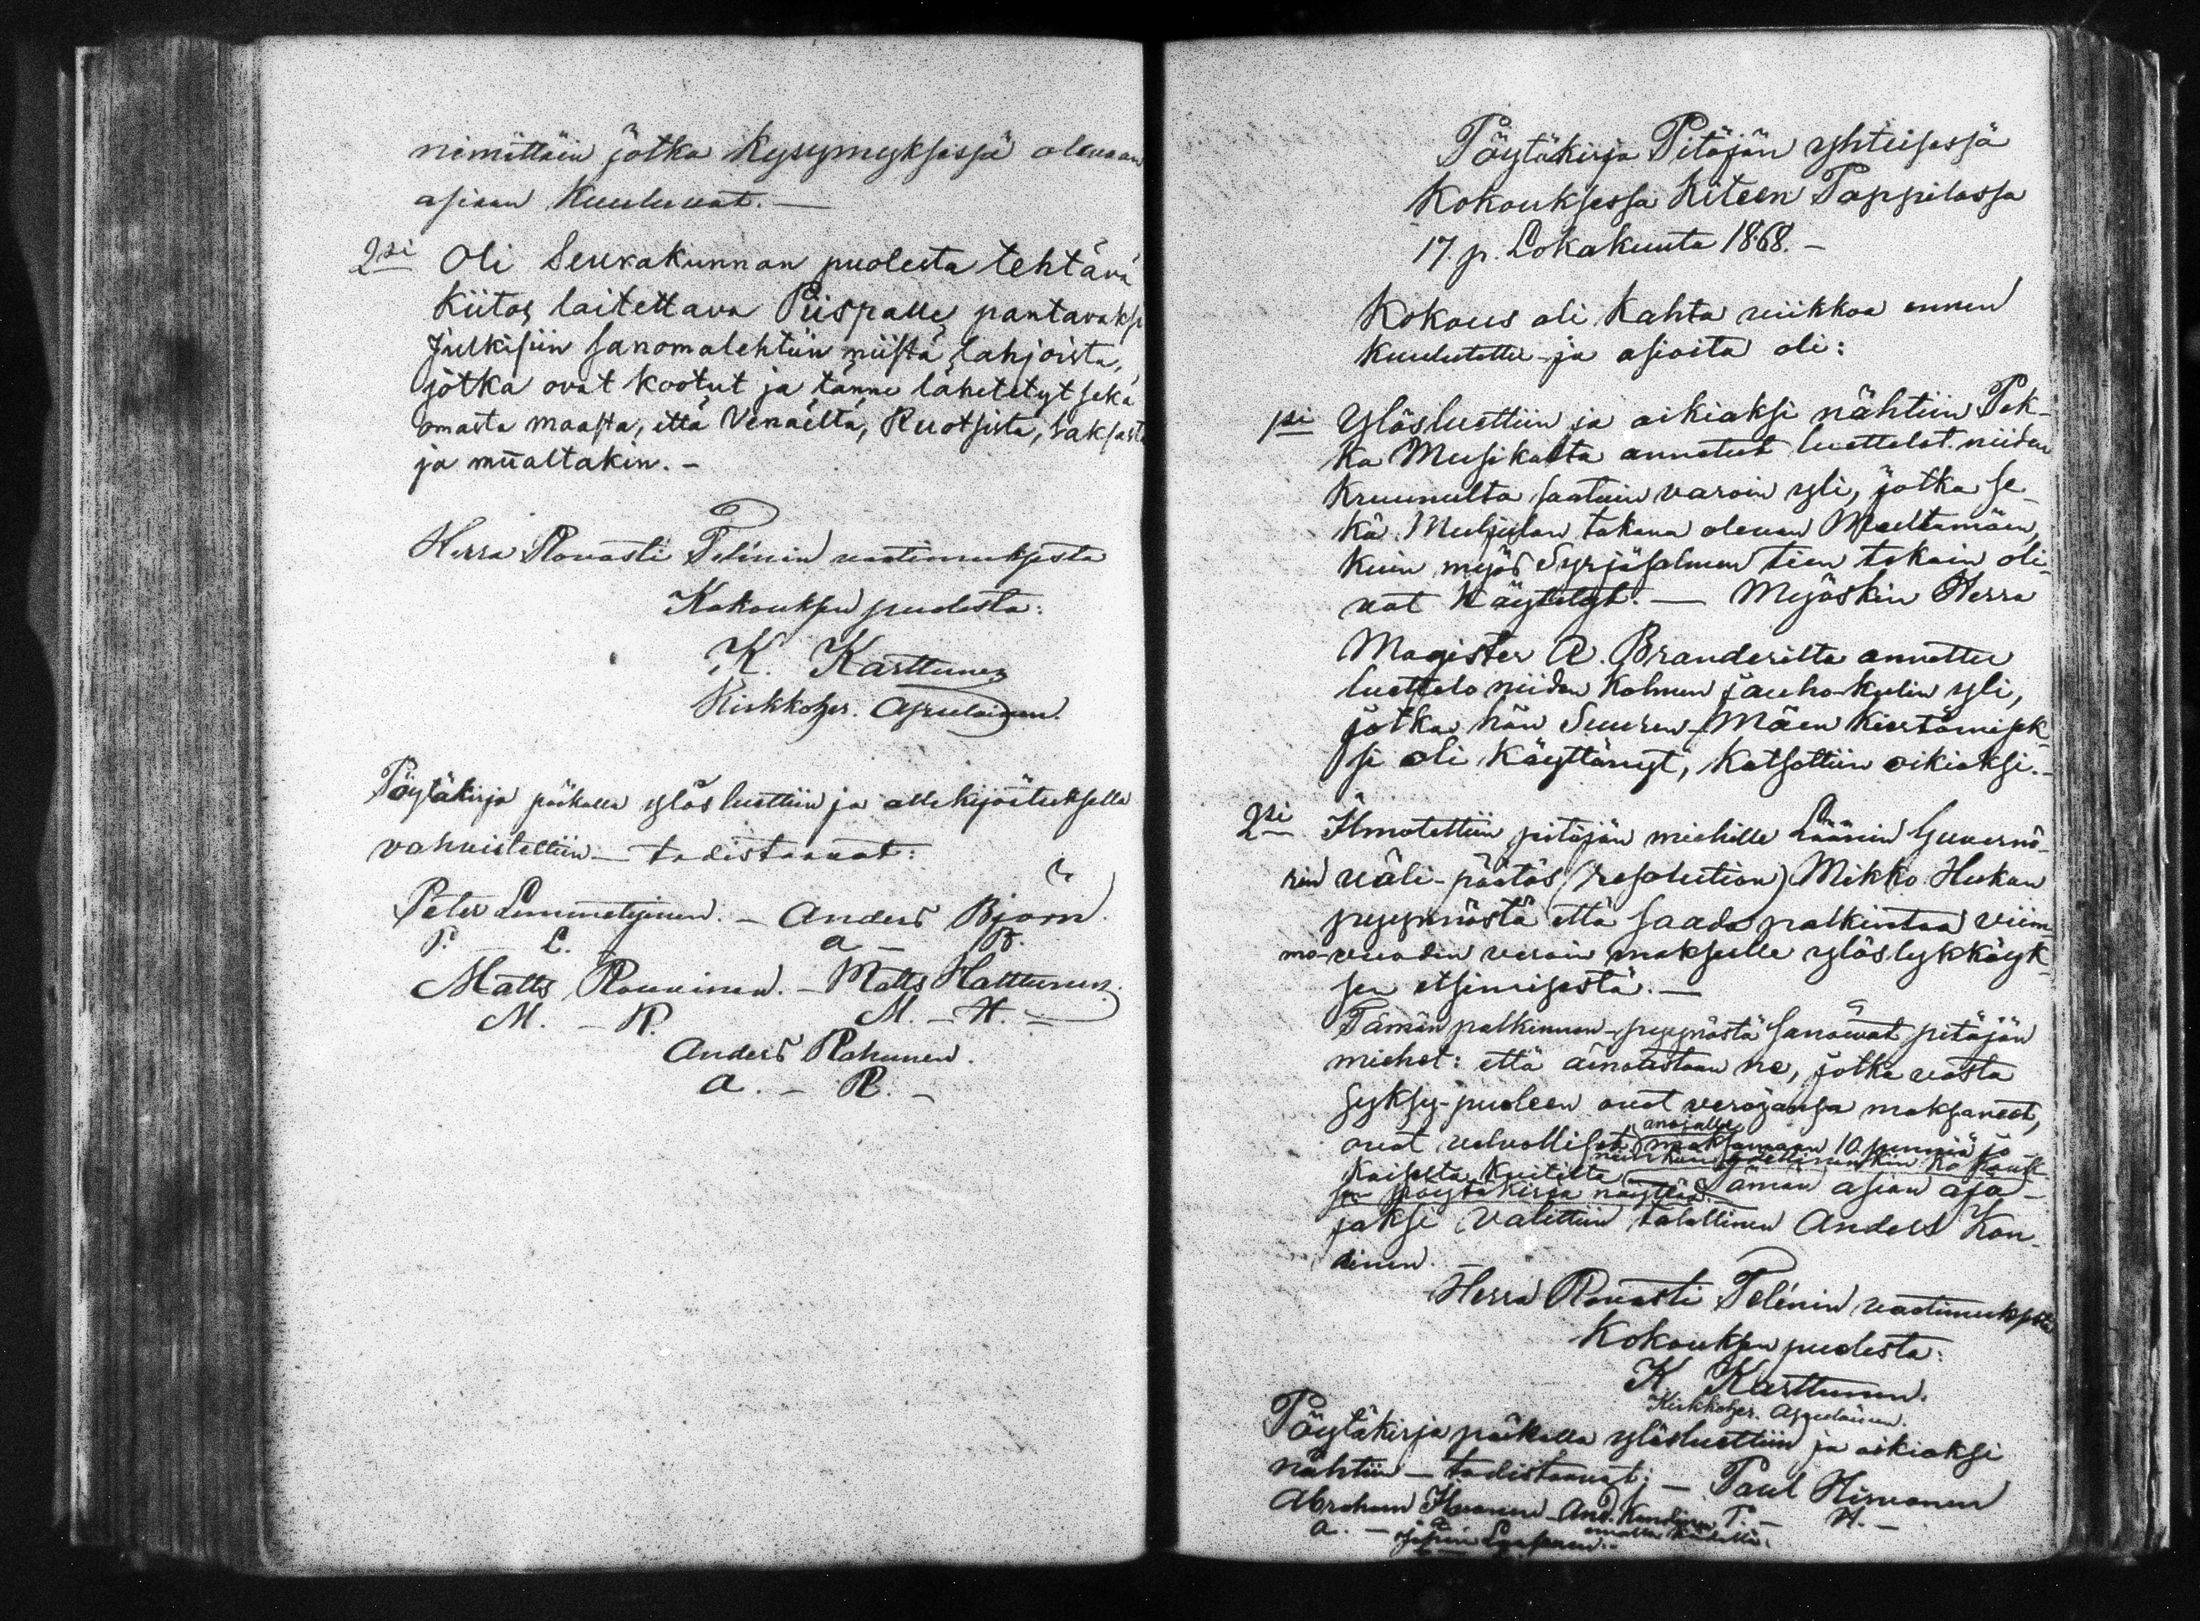 nimittäin jotka kysymyksessä olevaan
asiaan kuuluvat. —
2si Oli Seurakunnan puolesta tehtävä
kiitos laitettava Piispalle pantavaksi
Julkisiin sanomalehtiin niistä lahjoista,
jotka ovat kootut ja tänne lähetetyt sekä
omasta maasta, että Venäeltä, Ruotsista, Saksasta
ja mualtakin. —
Herra Rovasti Telénin vaatimuksesta
Kokouksen puolesta:
K. Karttunen
Kirkkoher. Apulainen.
Pöytäkirja paikalla ylösluettiin ja allekirjoituksella
vahvistettiin — todistaavat:
Peter Lemmetyinen. — Anders Björn.
P. L. a — B.
Matts Rouvinen. — Matts Hattunen.
M. — R. M. — H. —
Anders Rahunen.
a. — R. —
Pöytäkirja Pitäjän yhteisessä
Kokouksessa Kiteen Pappilassa
17. p. Lokakuuta 1868. —
Kokous oli kahta viikkoa ennen
kuulutettu ja asioita oli:
1si Ylösluettiin ja oikiaksi nähtiin Pek-
ka Musikalta annetut luettelot niiden
kruunulta saatuin varoin yli, jotka se-
kä Muljulan takana olevan Multamäen,
kuin myös Syrjäsalmen tien tekoin oli-
vat käytetyt. — Myöskin Herra
Magister A. Branderilta annettu
luettelo niiden kolmen jauho-kulin yli,
jotka hän Suuren-Mäen kiertämisek-
si oli käyttänyt, katsottiin oikiaksi. —
2si Ilmotettiin pitäjän miehille Läänin Guvernö-
rin väli-päätös (resolution) Mikko Hukan
pyynnöstä että saada palkintaa viim-
mo-vuoden veroin maksulle ylöslykkäyk-
sen etsimisestä. —
Tämän palkinnon-pyynöstä sanoivat pitäjän
miehet: että ainoastaan ne, jotka vasta
syksy-puoleen ovat verojansa maksaneet,
ovat velvolliset anojalle maksamaan 10 penniä jo-
kaisesta kuitilta niinkuin edellinenkin kokouk-
sen pöytäkirja näyttää. Tämän asian aja-
jaksi valittiin talollinen Anders Kon-
dinen.
Herra Rovasti Telénin vaatimuksesta
Kokouksen puolesta:
K Karttunen.
Kirkkoher. Apulainen.
Pöytäkirja paikalla ylösluettiin ja oikiaksi
nähtiin — todistaavat: — Paul Hirvonen
Abraham Ikonen And. Kondinen P. — H. —
a. — omalla kädellä.